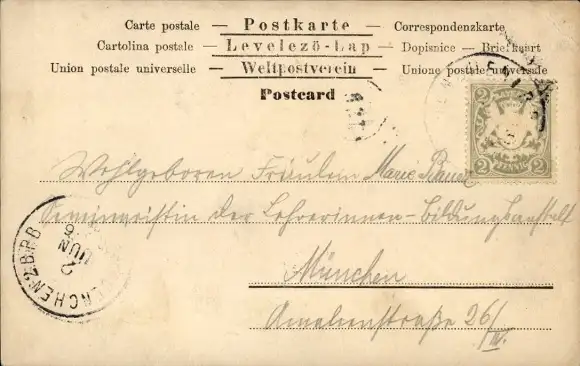 Carte postale — Postkarte — Correspondenzkarte
Cartolina postale — Levelező-Lap — Dopisnice — Briefkaart
Union postale universelle — Weltpostverein — Unione postale universale
Postcard
2 2
2 PFENNIG 2
Wohlgeboren Fräulein Marie Bauer
Seminaristin der Lehrerinnen-Bildungsanstalt
München
Amalienstraße 26/III.
2 JUN